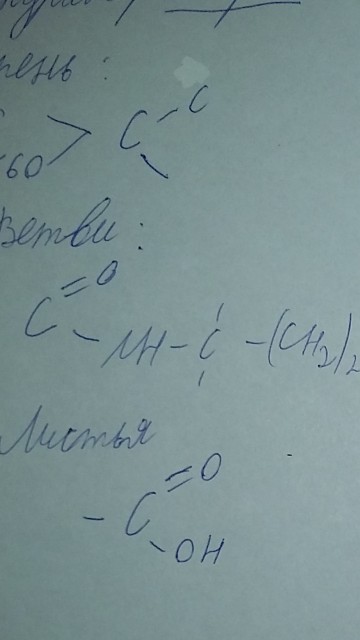 рень:
C
60 > C
Ветви:
O
C
NH - C - (CH2)2
Листья
O
- C
OH